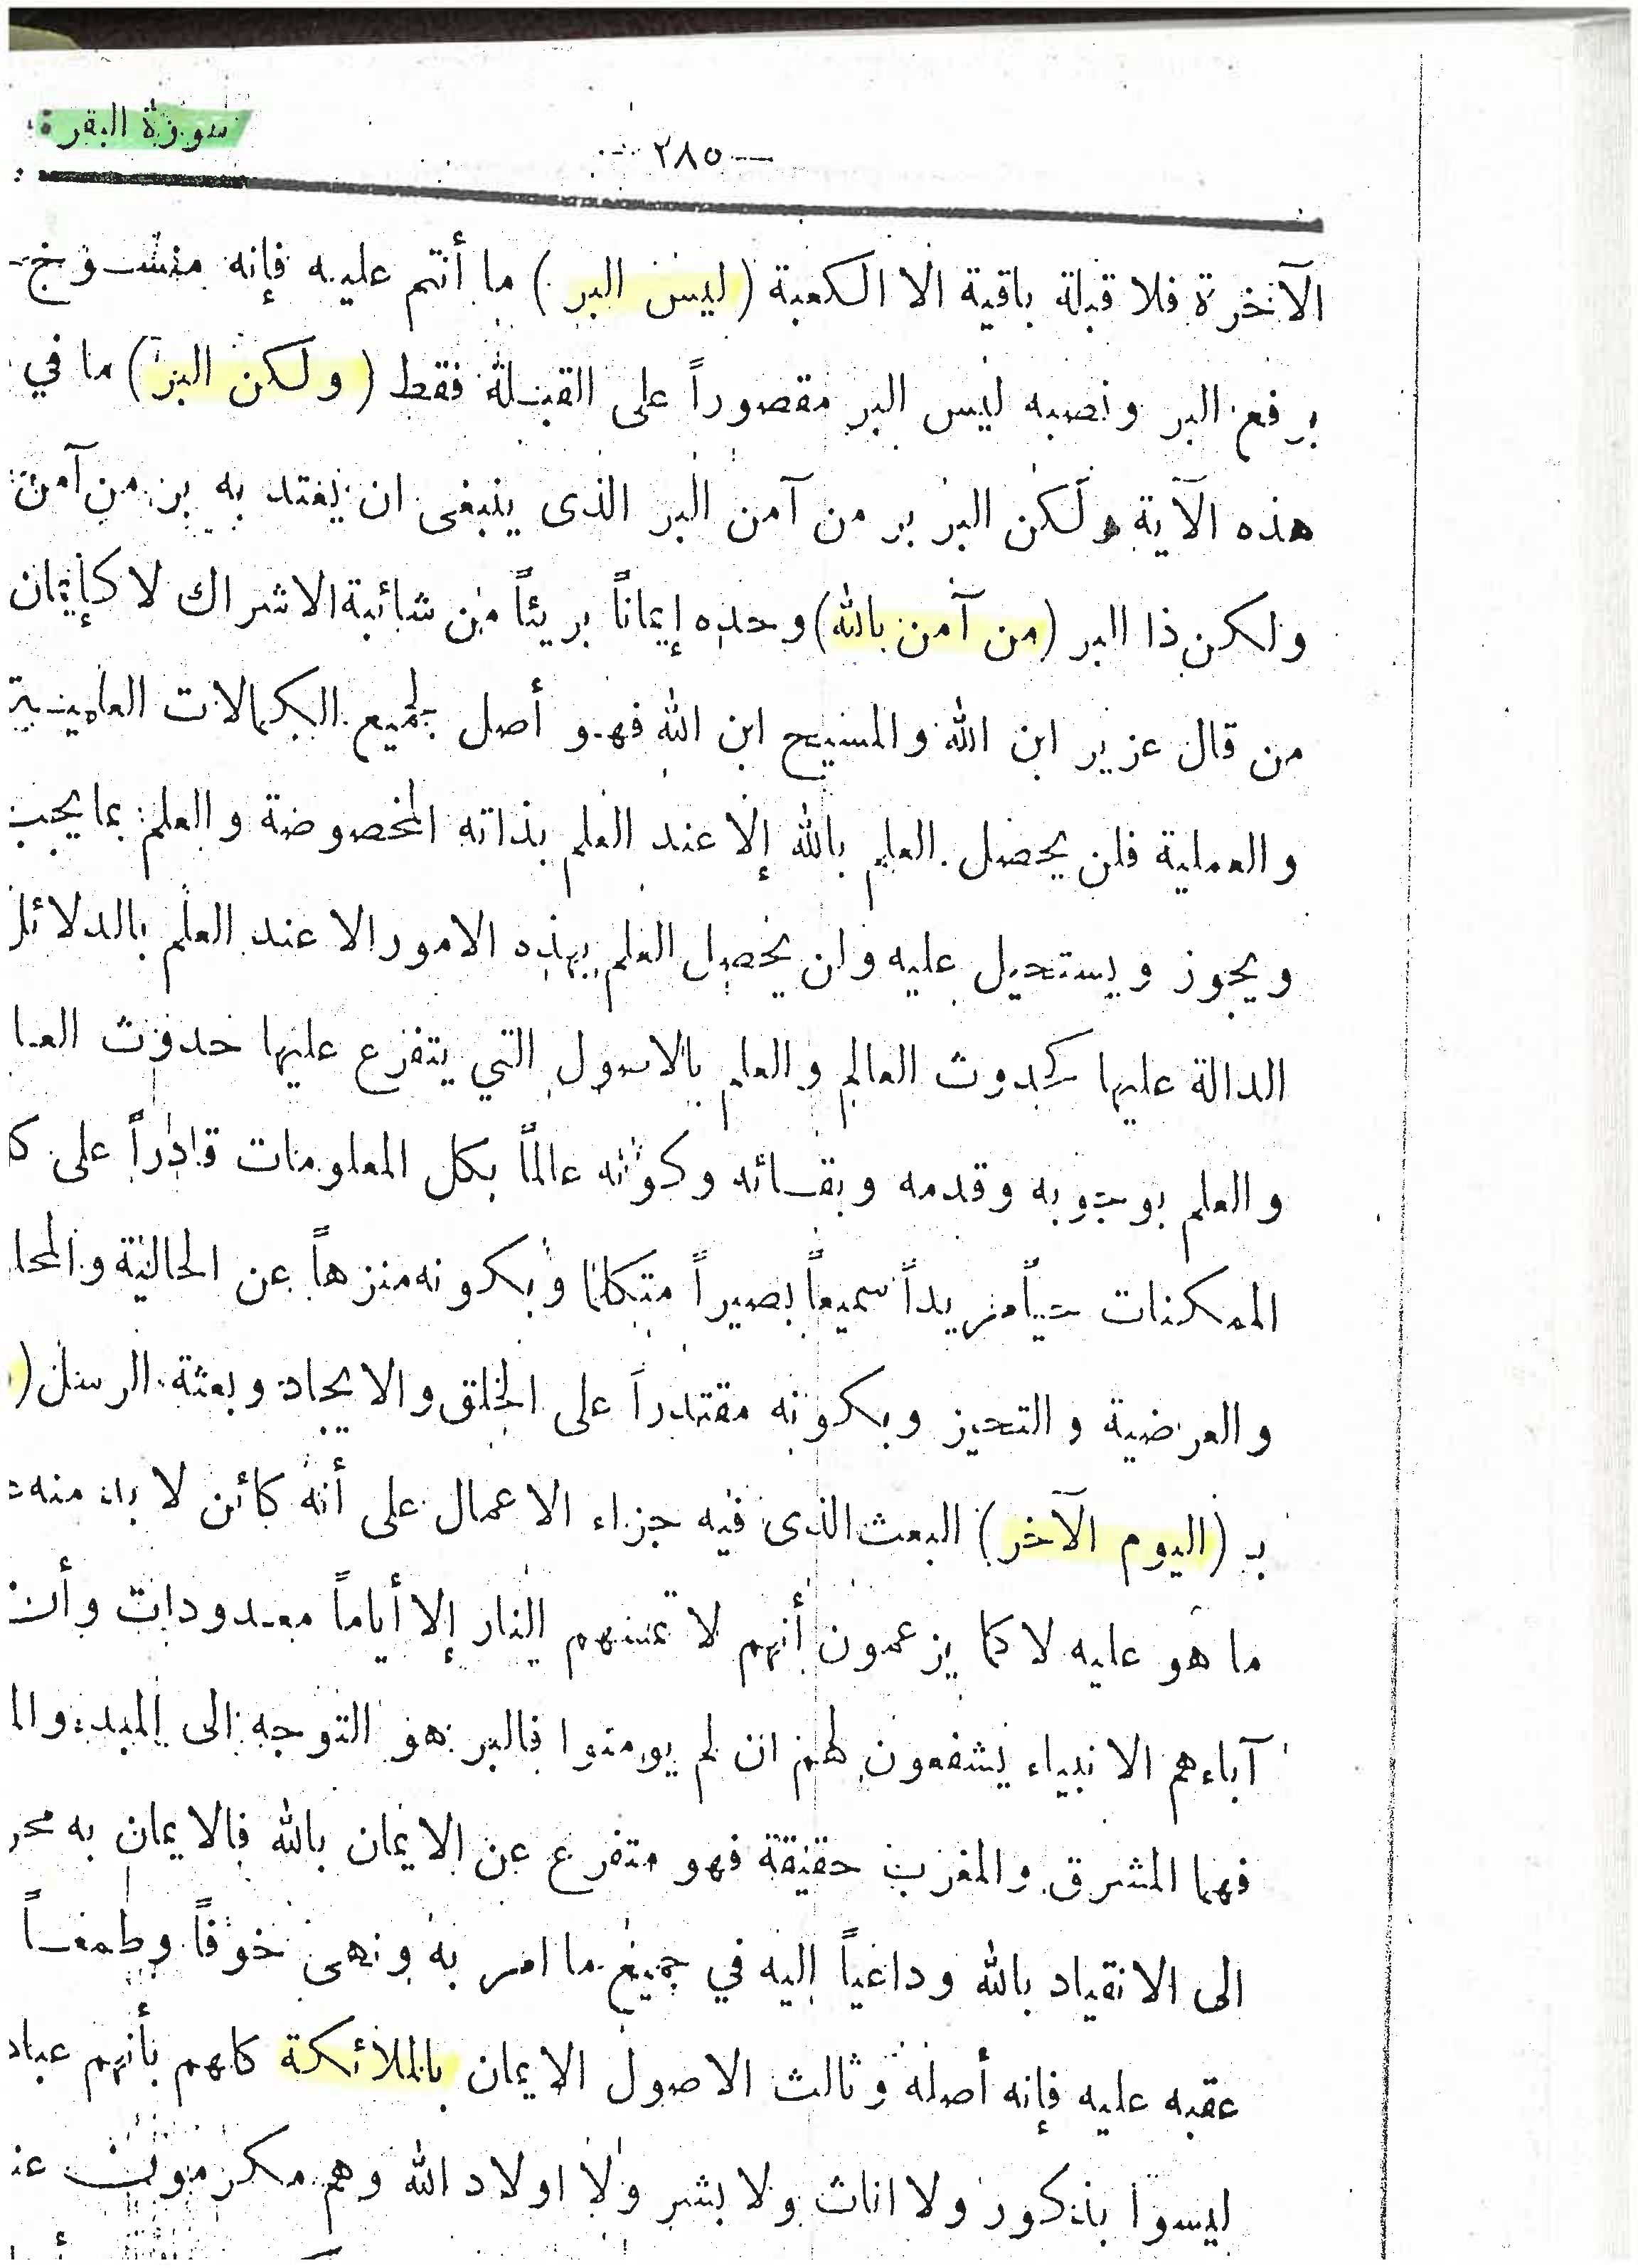 سورة البقرة
— ٢٨٥ —
الآخرة فلا قبلة باقية الا الكعبة (ليس البر) ما أنتم عليه فإنه منسوخ
برفع البر ونصبه ليس البر مقصوراً على القبلة فقط (ولكن البر) ما في
هذه الآية ولكن البر بر من آمن البر الذى ينبغى ان يعتد به بر من آمن
ولكن ذا البر (من آمن بالله) وحده إيماناً بريئاً من شائبة الاشراك لا كإيمان
من قال عزير ابن الله والمسيح ابن الله فهو أصل لجميع الكمالات العلمية
والعملية فلن يحصل العلم بالله إلا عند العلم بذاته المخصوصة والعلم بما يجب
ويجوز ويستحيل عليه ولن يحصل العلم بهذه الامور الا عند العلم بالدلائل
الدالة عليها كحدوث العالم والعلم بالاصول التي يتفرع عليها حدوث العا
والعلم بوجوبه وقدمه وبقائه وكونه عالماً بكل المعلومات قادراً على كل
الممكنات حياً مريداً سميعاً بصيراً متكلماً وبكونه منزهاً عن الحالية والمحا
والعرضية والتحيز وبكونه مقتدراً على الخلق والايجاد وبعثة الرسل (
بـ (اليوم الآخر) البعث الذى فيه جزاء الاعمال على أنه كائن لا بد منه
ما هو عليه لا كما يزعمون أنهم لا تمسهم النار إلا أياماً معدودات وأن
آباءهم الانبياء يشفعون لهم ان لم يومنوا فالبر هو التوجه الى المبدء والم
فهما المشرق والمغرب حقيقة فهو متفرع عن الايمان بالله فالايمان به محر
الى الانقياد بالله وداعياً اليه في جميع ما امر به ونهى خوفاً وطمعاً
عقبه عليه فإنه أصله وثالث الاصول الايمان بالملائكة كلهم بأنهم عباد
ليسوا بذكور ولا اناث ولا بشر ولا اولاد الله وهم مكرمون عند